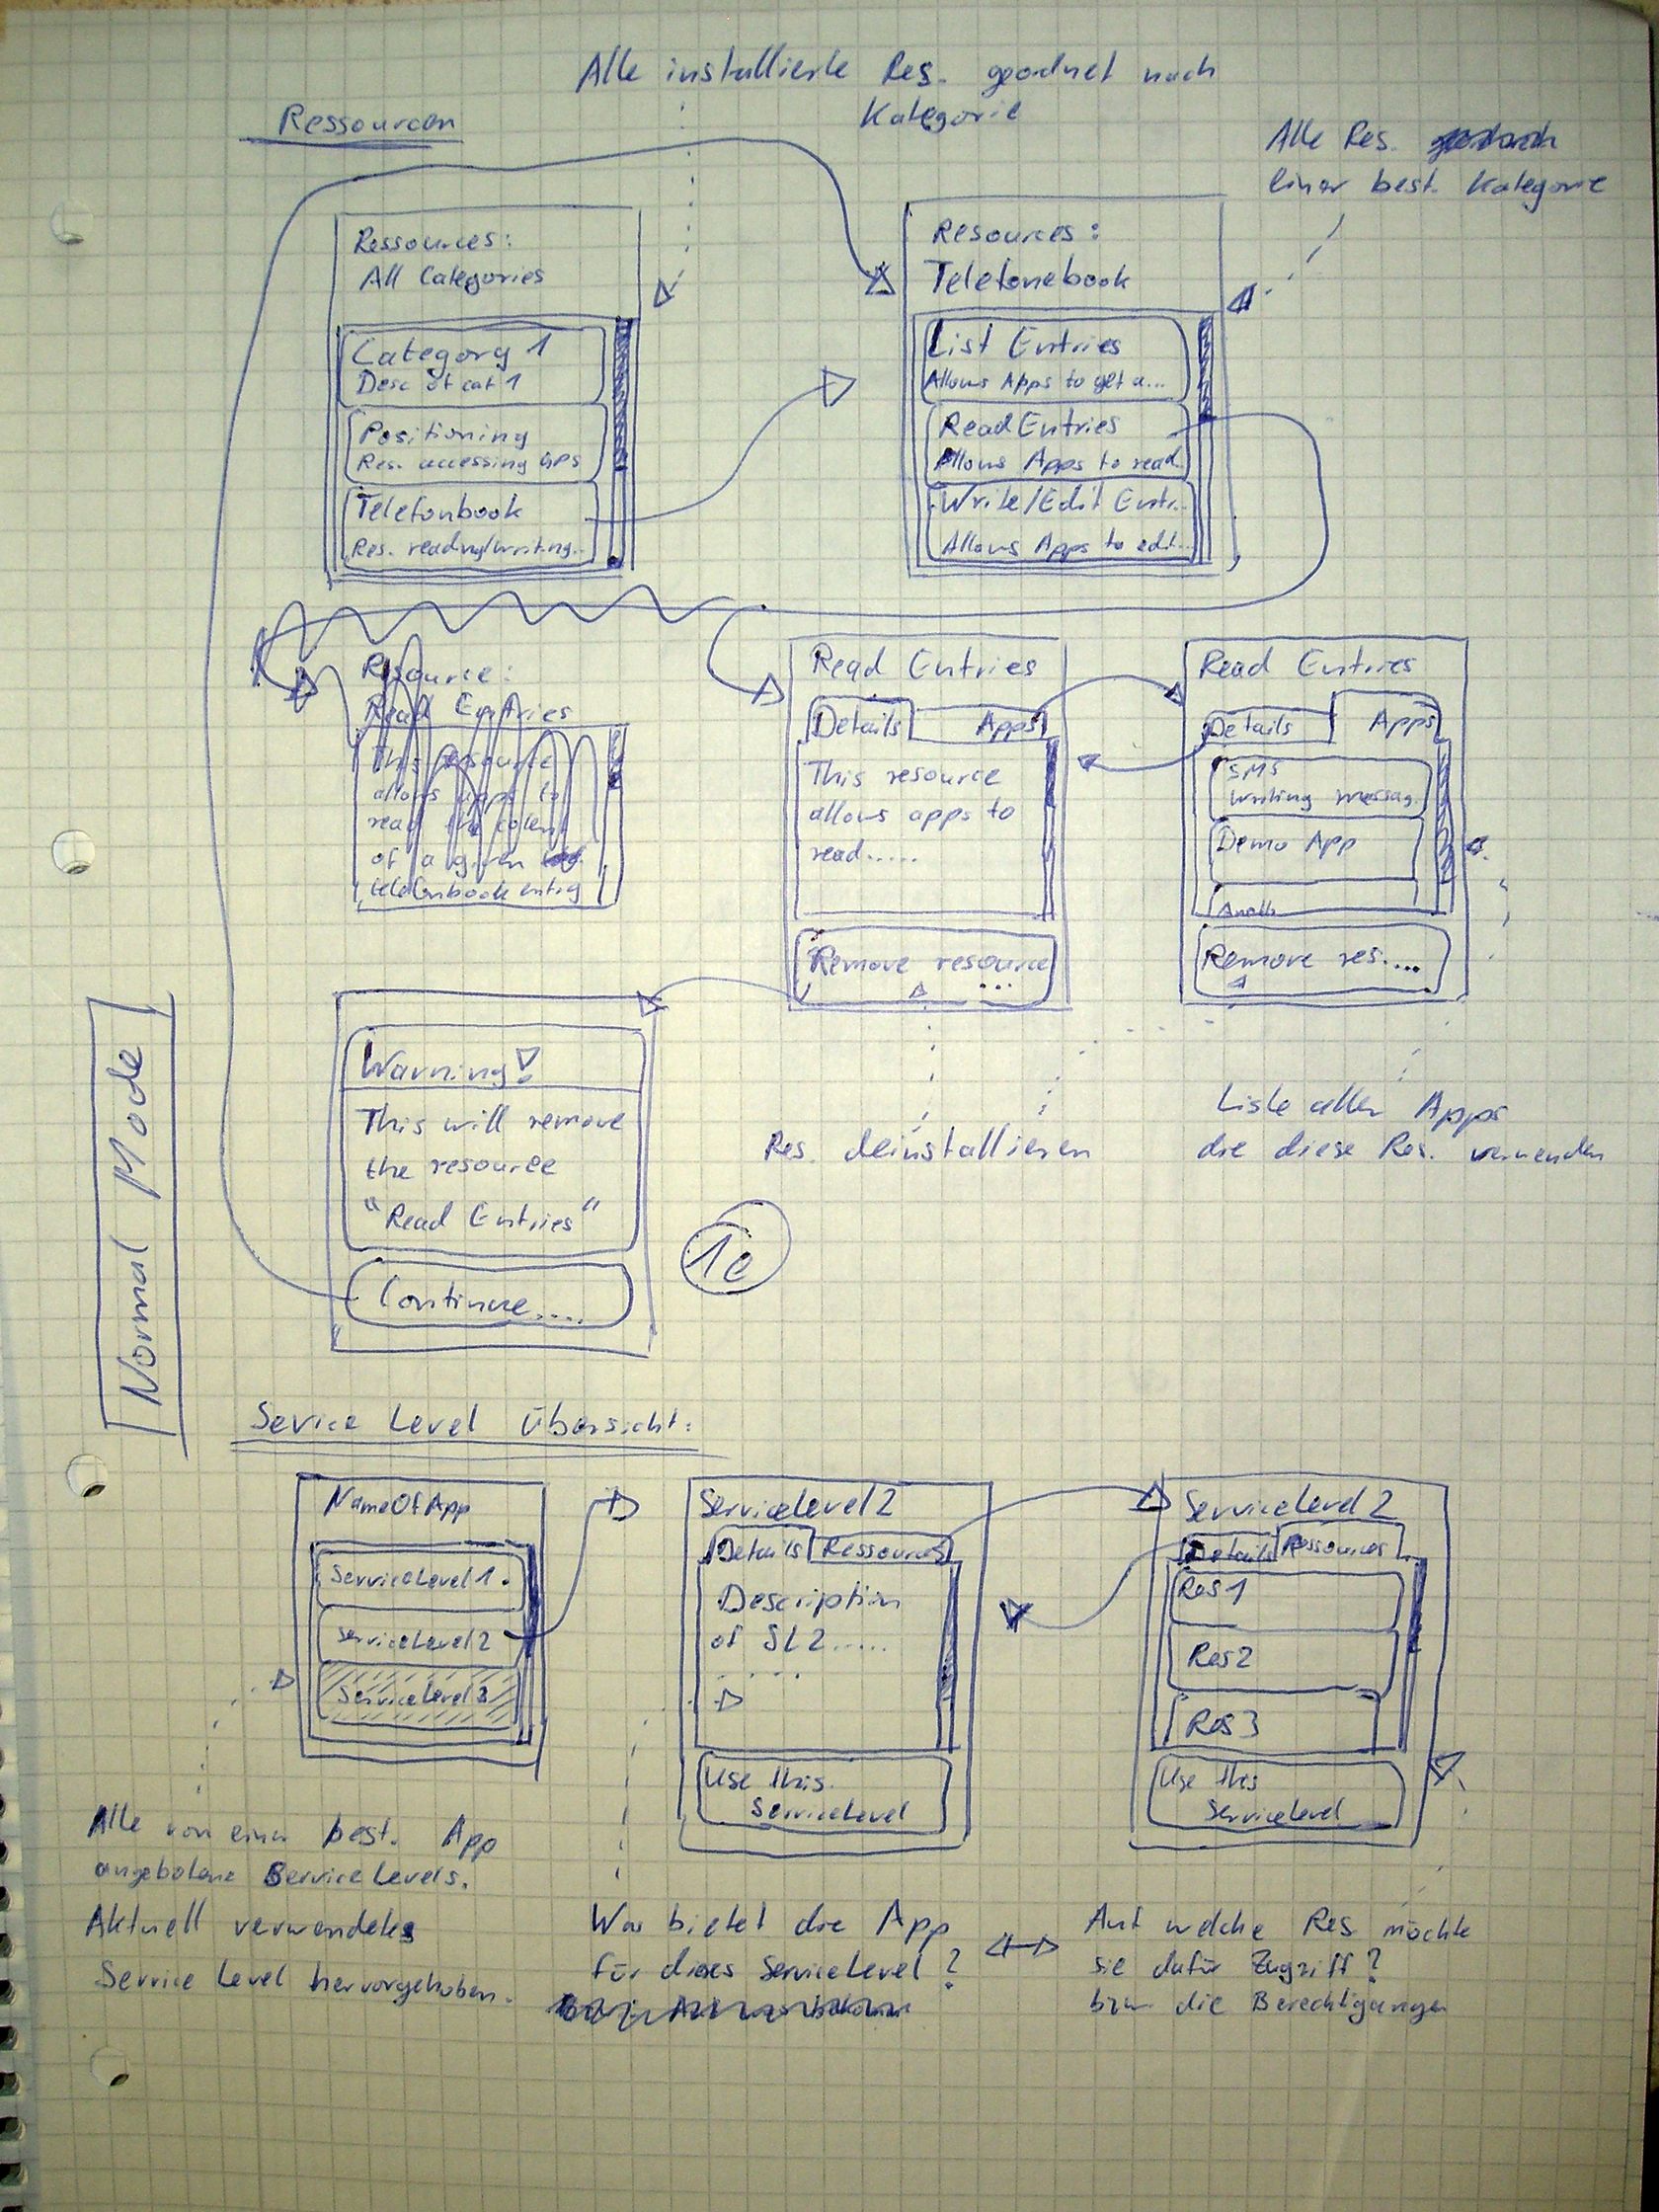 Alle installierte Res. geordnet nach
Kategorie
Ressourcen
Alle Res.
einer best. Kategorie
Ressources:
All Categories
Category 1
Desc of cat 1
Positioning
Res. accessing GPS
Telefonbook
Res. reading/writing..
Resources:
Telefonebook
List Entries
Allows Apps to get a...
Read Entries
Allows Apps to read..
Write/Edit Entr..
Allows Apps to edit...
Resource:
Read Entries
This resource
allows apps to
read the
of a given
telefonbook entry
Read Entries
Details Apps
This resource
allows apps to
read.....
Remove resource
...
Read Entries
Details Apps
SMS
writing messag.
Demo App
Anoth
Remove res....
Warning!
This will remove
the resource
"Read Entries"
Continue....
Res. deinstallieren
Liste aller Apps
die diese Res. verwenden
1c
Normal Mode
Sevice Level Übersicht:
NameOfApp
ServiceLevel 1.
ServiceLevel 2
ServiceLevel 3
ServiceLevel 2
Details Ressources
Description
of SL2.....
....
Use this
ServiceLevel
ServiceLevel 2
Details Ressources
Res1
Res2
Res3
Use this
ServiceLevel
Alle von einer best. App
angebotene ServiceLevels.
Aktuell verwendetes
Service Level hervorgehoben.
Was bietet die App
für dieses ServiceLevel?
Auf welche Res möchte
sie dafür Zugriff?
bzw die Berechtigungen